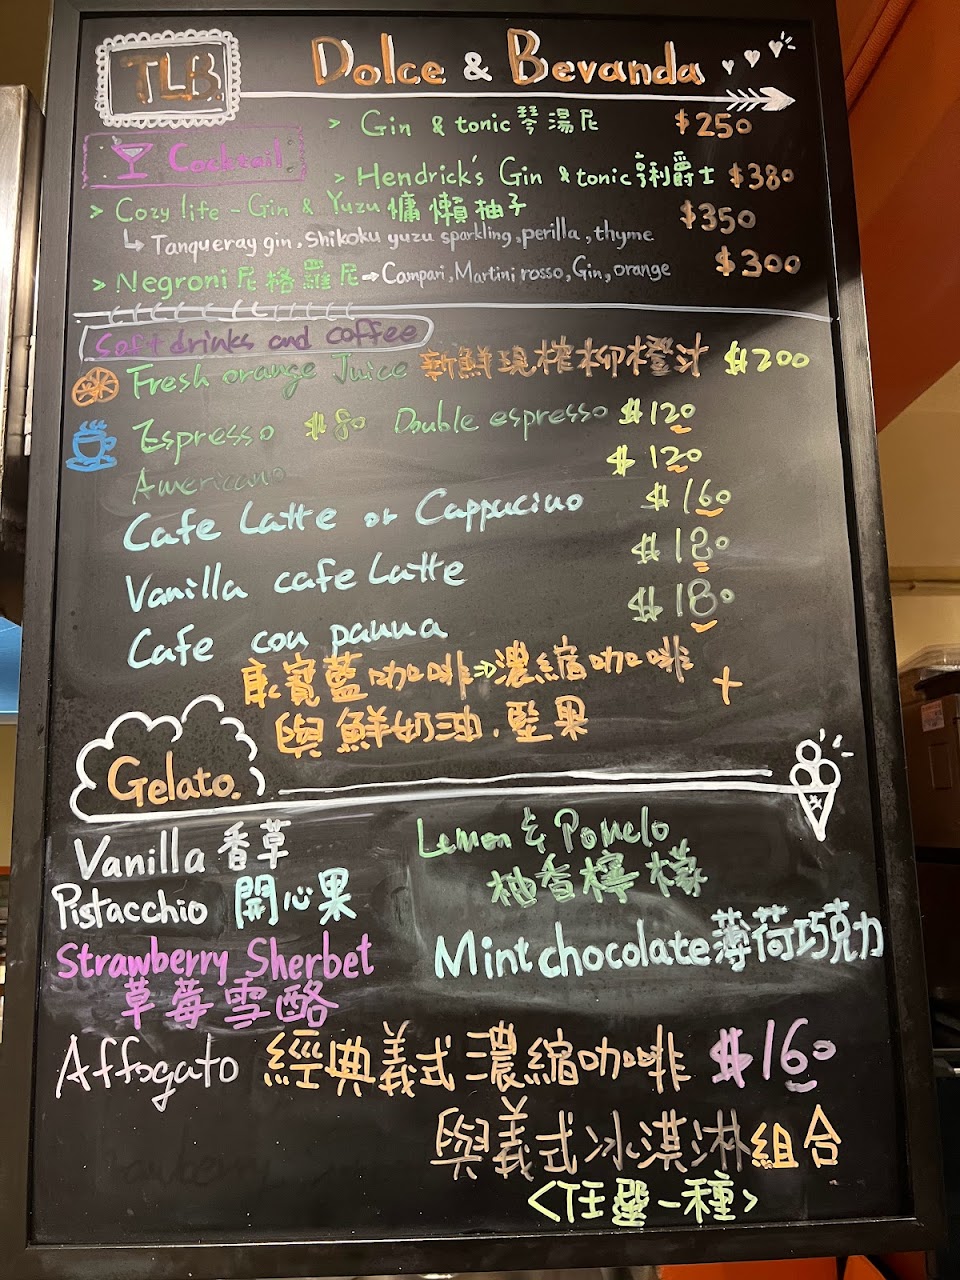 TLB. Dolce & Bevanda
> Gin & tonic 琴湯尼 $250
Cocktail
> Hendrick's Gin & tonic 亨利爵士 $380
> Cozy life - Gin & Yuzu 慵懶柚子 $350
↳ Tanqueray gin, Shikoku yuzu sparkling, perilla, thyme
> Negroni 尼格羅尼 → Campari, Martini rosso, Gin, orange $300
Soft drinks and coffee
Fresh orange Juice 新鮮現榨柳橙汁 $200
Espresso $80 Double espresso $120
Americano $120
Cafe Latte or Cappucino $160
Vanilla cafe Latte $180
Cafe con panna $180
康寶藍咖啡⇒濃縮咖啡 +
與鮮奶油.堅果
Gelato.
Vanilla 香草
Lemon & Pomelo
柚香檸檬
Pistacchio 開心果
Mint chocolate 薄荷巧克力
Strawberry Sherbet
草莓雪酪
Affogato 經典義式濃縮咖啡 $160
與義式冰淇淋組合
<任選一種>